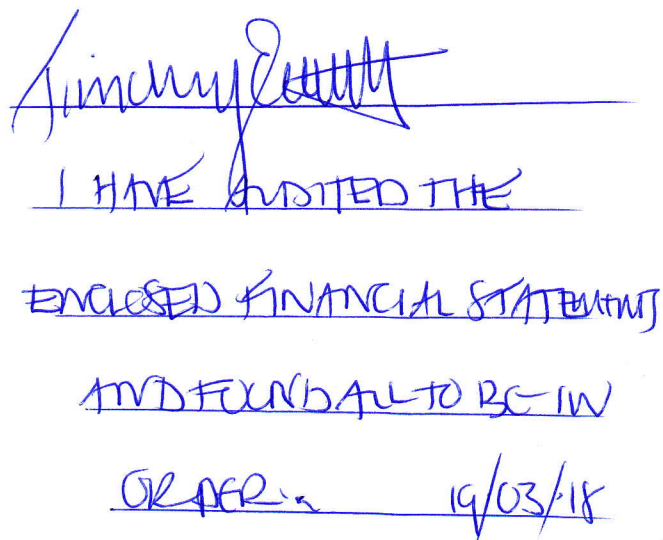 Timothy
I HAVE AUDITED THE
ENCLOSED FINANCIAL STATEMENTS
AND FOUND ALL TO BE IN
ORDER. 19/03/18